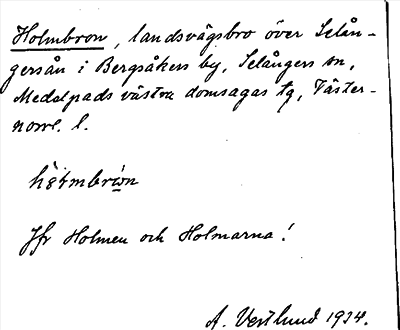 Holmbron, landsvägsbro över Selån-
gersån i Bergsåkers by, Selångers sn,
Medelpads västra domsagas tg, Väster-
norrl. l.
Jfr Holmen och Holmarna!
A. Vestlund 1934.